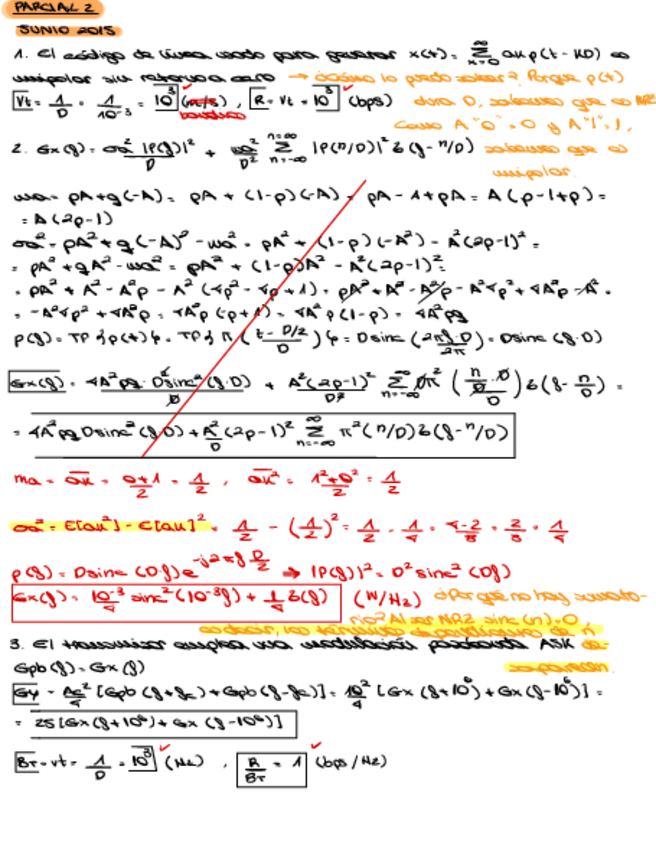 PARCIAL 2
JUNIO 2015
1. El código de línea usado para generar x(t) = Σ_{k=0}^{∞} ak p(t - kD) es
unipolar sin retorno a cero → ¿cómo lo puedo saber? Porque p(t)
Vt = 1/D = 1/10^-3 = 10^3 baudios, R = Vt = 10^3 (bps) dura D, sabemos que es NRZ
Como A "0" = 0 y A "1" = 1,
2. Gx(f) = σa² |P(f)|²/D + ma²/D² Σ_{n=-∞}^{n=∞} |P(n/D)|² δ(f - n/D) sabemos que es
unipolar.
ma = pA + q(-A) = pA + (1-p)(-A) = pA - A + pA = A(p-1+p) =
= A(2p-1)
σa² = pA² + q(-A)² - ma² = pA² + (1-p)(-A²) - A²(2p-1)² =
= pA² + qA² - ma² = pA² + (1-p)A² - A²(2p-1)² =
= pA² + A² - A²p - A²(4p² - 4p + 1) = pA² + A² - A²p - A²4p² + 4A²p - A² =
= -A²4p² + 4A²p = 4A²p(-p+1) = 4A²p(1-p) = 4A²pq
P(f) = TF{p(t)} = TF{π((t - D/2)/D)} = D sinc(2πf·D/2π) = D sinc(f·D)
Gx(f) = 4A²pq · D sinc²(f·D)/D + A²(2p-1)²/D² Σ_{n=-∞}^{∞} Dπ²(n/D · D) δ(f - n/D) =
= 4A²pq D sinc²(f·D) + A²/D (2p-1)² Σ_{n=-∞}^{∞} π²(n/D) δ(f - n/D)
ma = ak = (0+1)/2 = 1/2, ak² = (1²+0²)/2 = 1/2
σa² = E[ak²] - E[ak]² = 1/2 - (1/2)² = 1/2 - 1/4 = (4-2)/8 = 2/8 = 1/4
P(f) = D sinc(D·f) e^{-j2πf D/2} → |P(f)|² = D² sinc²(Df)
Gx(f) = 10^-3/4 sinc²(10^-3 f) + 1/4 δ(f) (W/Hz) ¿Por qué no hay sumato-
rio? Al ser NRZ sinc(n)=0,
es decir, los términos dependientes de n
3. El transmisor emplea una modulación pasobanda ASK de-
Gpb(f) = Gx(f) saparecen.
Gy = Ac²/4 [Gpb(f+fc) + Gpb(f-fc)] = 10²/4 [Gx(f+10^6) + Gx(f-10^6)] =
= 25[Gx(f+10^6) + Gx(f-10^6)]
BT = Vt = 1/D = 10^3 (Hz), R/BT = 1 (bps/Hz)